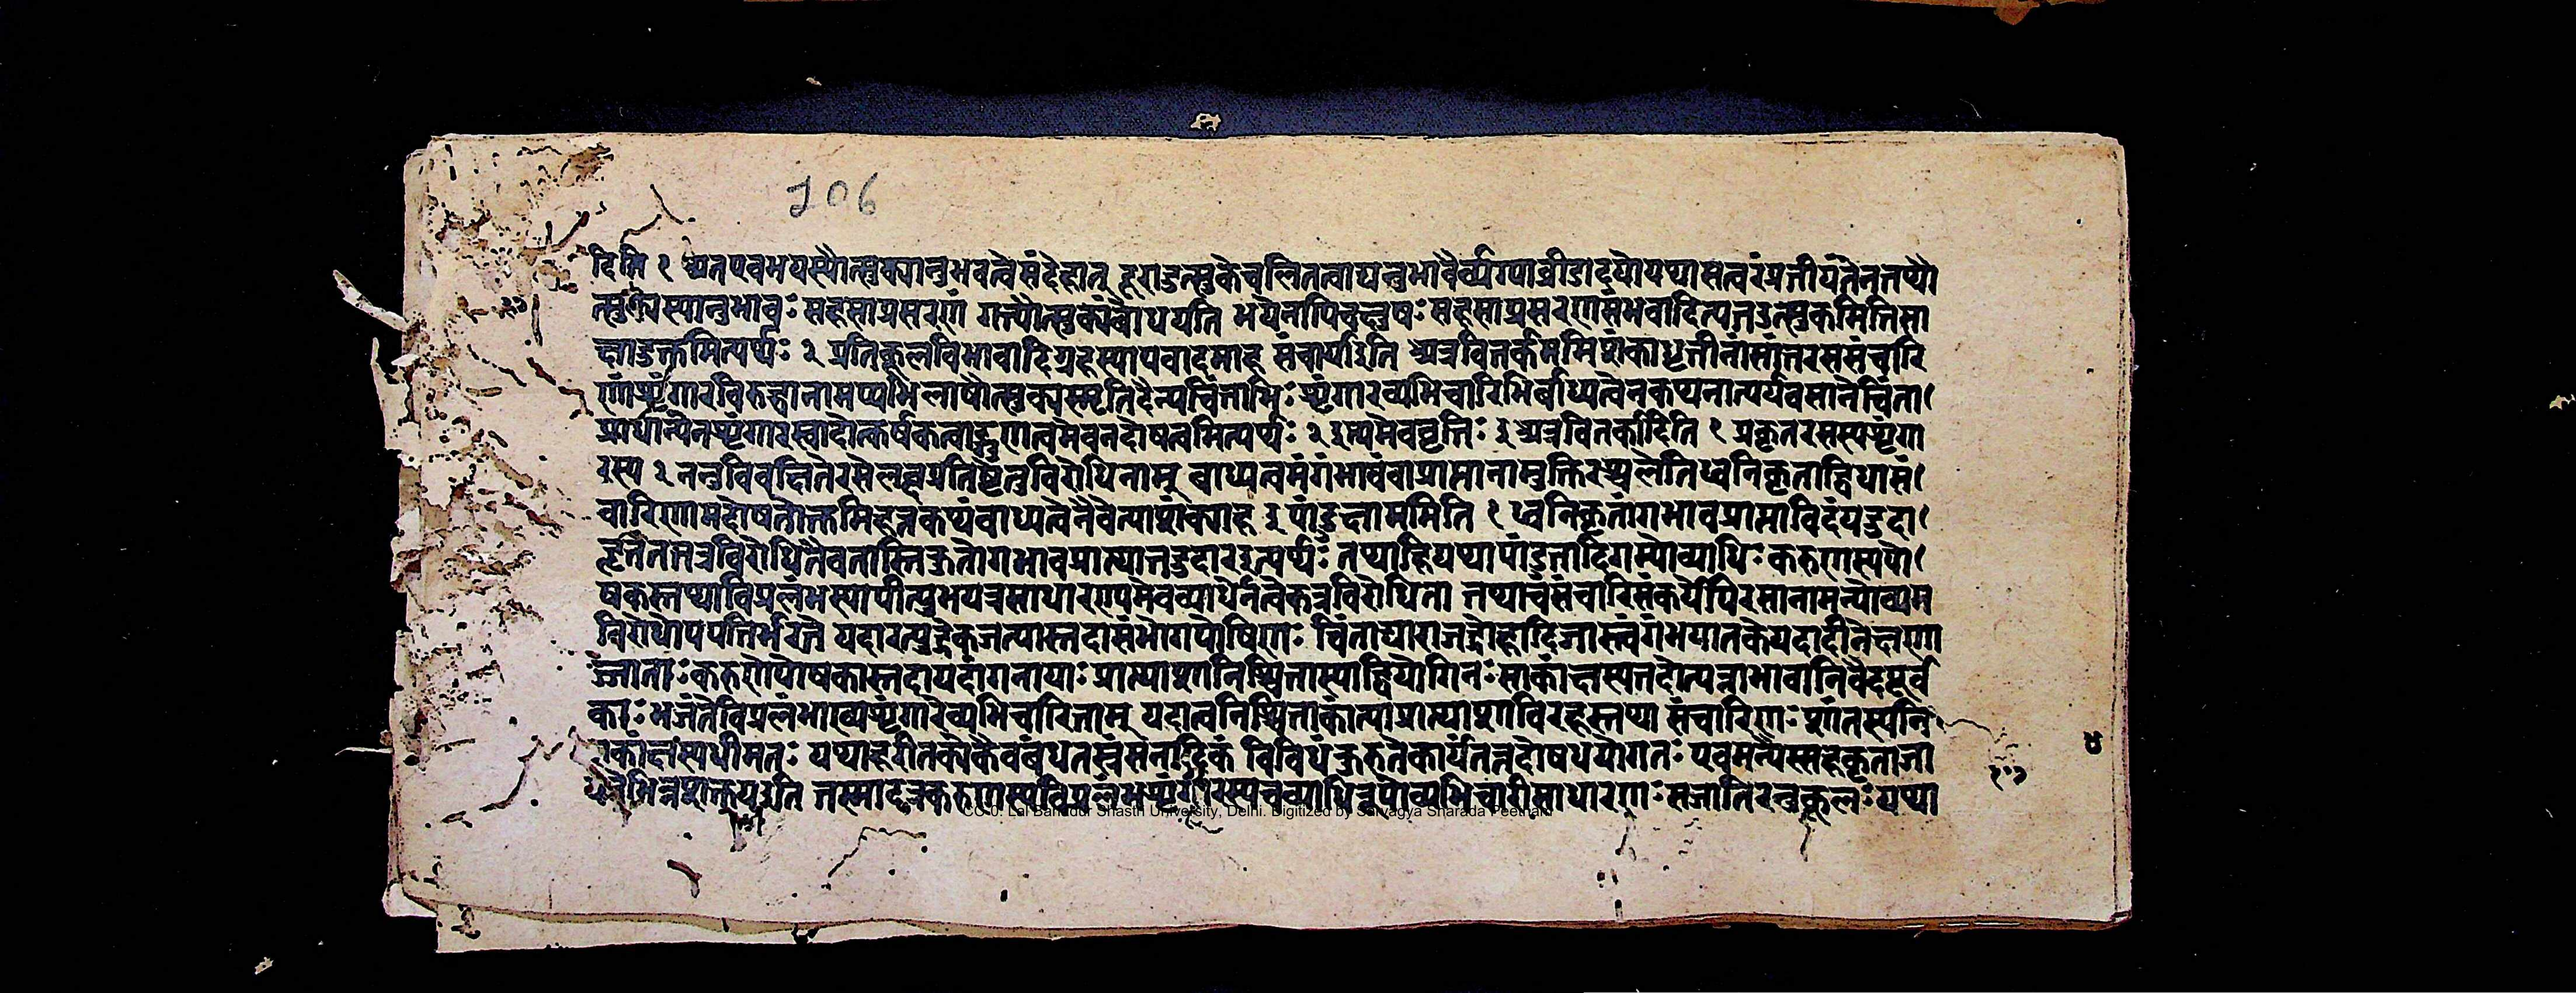 106
दिति १ अतएवभयस्यौत्सुक्यानुभवत्वेसंदेहात् दूराडुत्सुकेचलितत्वाद्यनुभावैर्व्यग्पाव्रीडादयोयथासत्वरंप्रतीयंतेनतथौ
त्सुक्यस्यानुभावः सहसाप्रसरणं गत्त्यौत्सुक्यंबोधयति भयेनापिचक्षुषः सहसाप्रसरणसंभवादित्यतउत्सुकमितिसा
क्षाडुक्तमित्यर्थः २ प्रतिकूलविभावादिग्रहस्यापवादमाह संचार्यइति अत्रवितर्कमतिशंकाधृतीनांसांतरससंचारि
णांशृंगारविरुद्धानामप्यभिलाषोत्सुक्यस्मृतिदैन्यचिंताभिः शृंगारव्यभिचारिभिर्बाध्यत्वेनकथनात्पर्यवसानेचिंता
प्राधान्येनशृंगारस्वादोत्कर्षकत्वाद्गुणत्वमेवनदोषत्वमित्यर्थः २ इत्यमेववृत्तिः इ अत्रवितर्कादिति १ प्रकृतरसस्यशृंगा
रस्य २ ननुविवक्षितेरसेलब्धप्रतिष्ठेतुविरोधिनाम् बाध्यत्वमंगंभावंवाप्राप्तानामुक्तिरश्छलेतिध्वनिकृताद्विधासं
चारिणामदोषतोक्तमिहतुकथंबाध्यत्वेनैवेत्याशंक्याह इ पांडुक्षाममिति १ ध्वनिकृतांगभावप्राप्ताविदंपद्युदा
हृतंतत्तत्रविरोधितैवनास्तिकुतोंगभावप्रात्यातडुदारइत्यर्थः तथाहियथापांडुतादिगम्योव्याधिः करुणस्यपो
षकस्तथाविप्रलंभस्यापीत्युभयत्रसाधारणएवमेवव्याधेर्नत्वेकत्रविरोधिता तथाचसंचारिसंकर्येपिरसानामन्योव्यम
विरोधोपपत्तिर्भरते यदारत्युद्रेकजत्यास्तदासंभोगपोषिणः चिंताद्याराजद्रोहादिजास्त्वंगंभयानकेयदादीतेक्षण
ज्जाताः करुणेपोषकास्तदायदांगनायाः प्राप्याशानिश्चितास्याद्वियोगिनः साकांक्षस्यतदोत्पन्नाभावानिर्वेदपूर्व
काः भजंतेविप्रलंभाख्यशृंगारेव्यभिचारिताम् यदात्वनिश्चिताकांत्याप्रात्याशाविरहस्तथा संचारिणः शांतस्यनि
राकांक्षस्यधीमतः यथाहरीतक्येकैवबंधतस्वंसनादिकं विविधंकुरुतेकार्यंतत्तदोषधयोगतः एवमन्यैस्सहकृताजा
यंतेभिन्नशक्तयइति तस्मादत्रकरुणस्यविप्रलंभशृंगारस्यचव्याधिरूपोव्यभिचारीसाधारणः सजातिरनुकूलः यथा
CC-0. Lal Bahadur Shastri University, Delhi. Digitized by Sarvagya Sharada Peetham